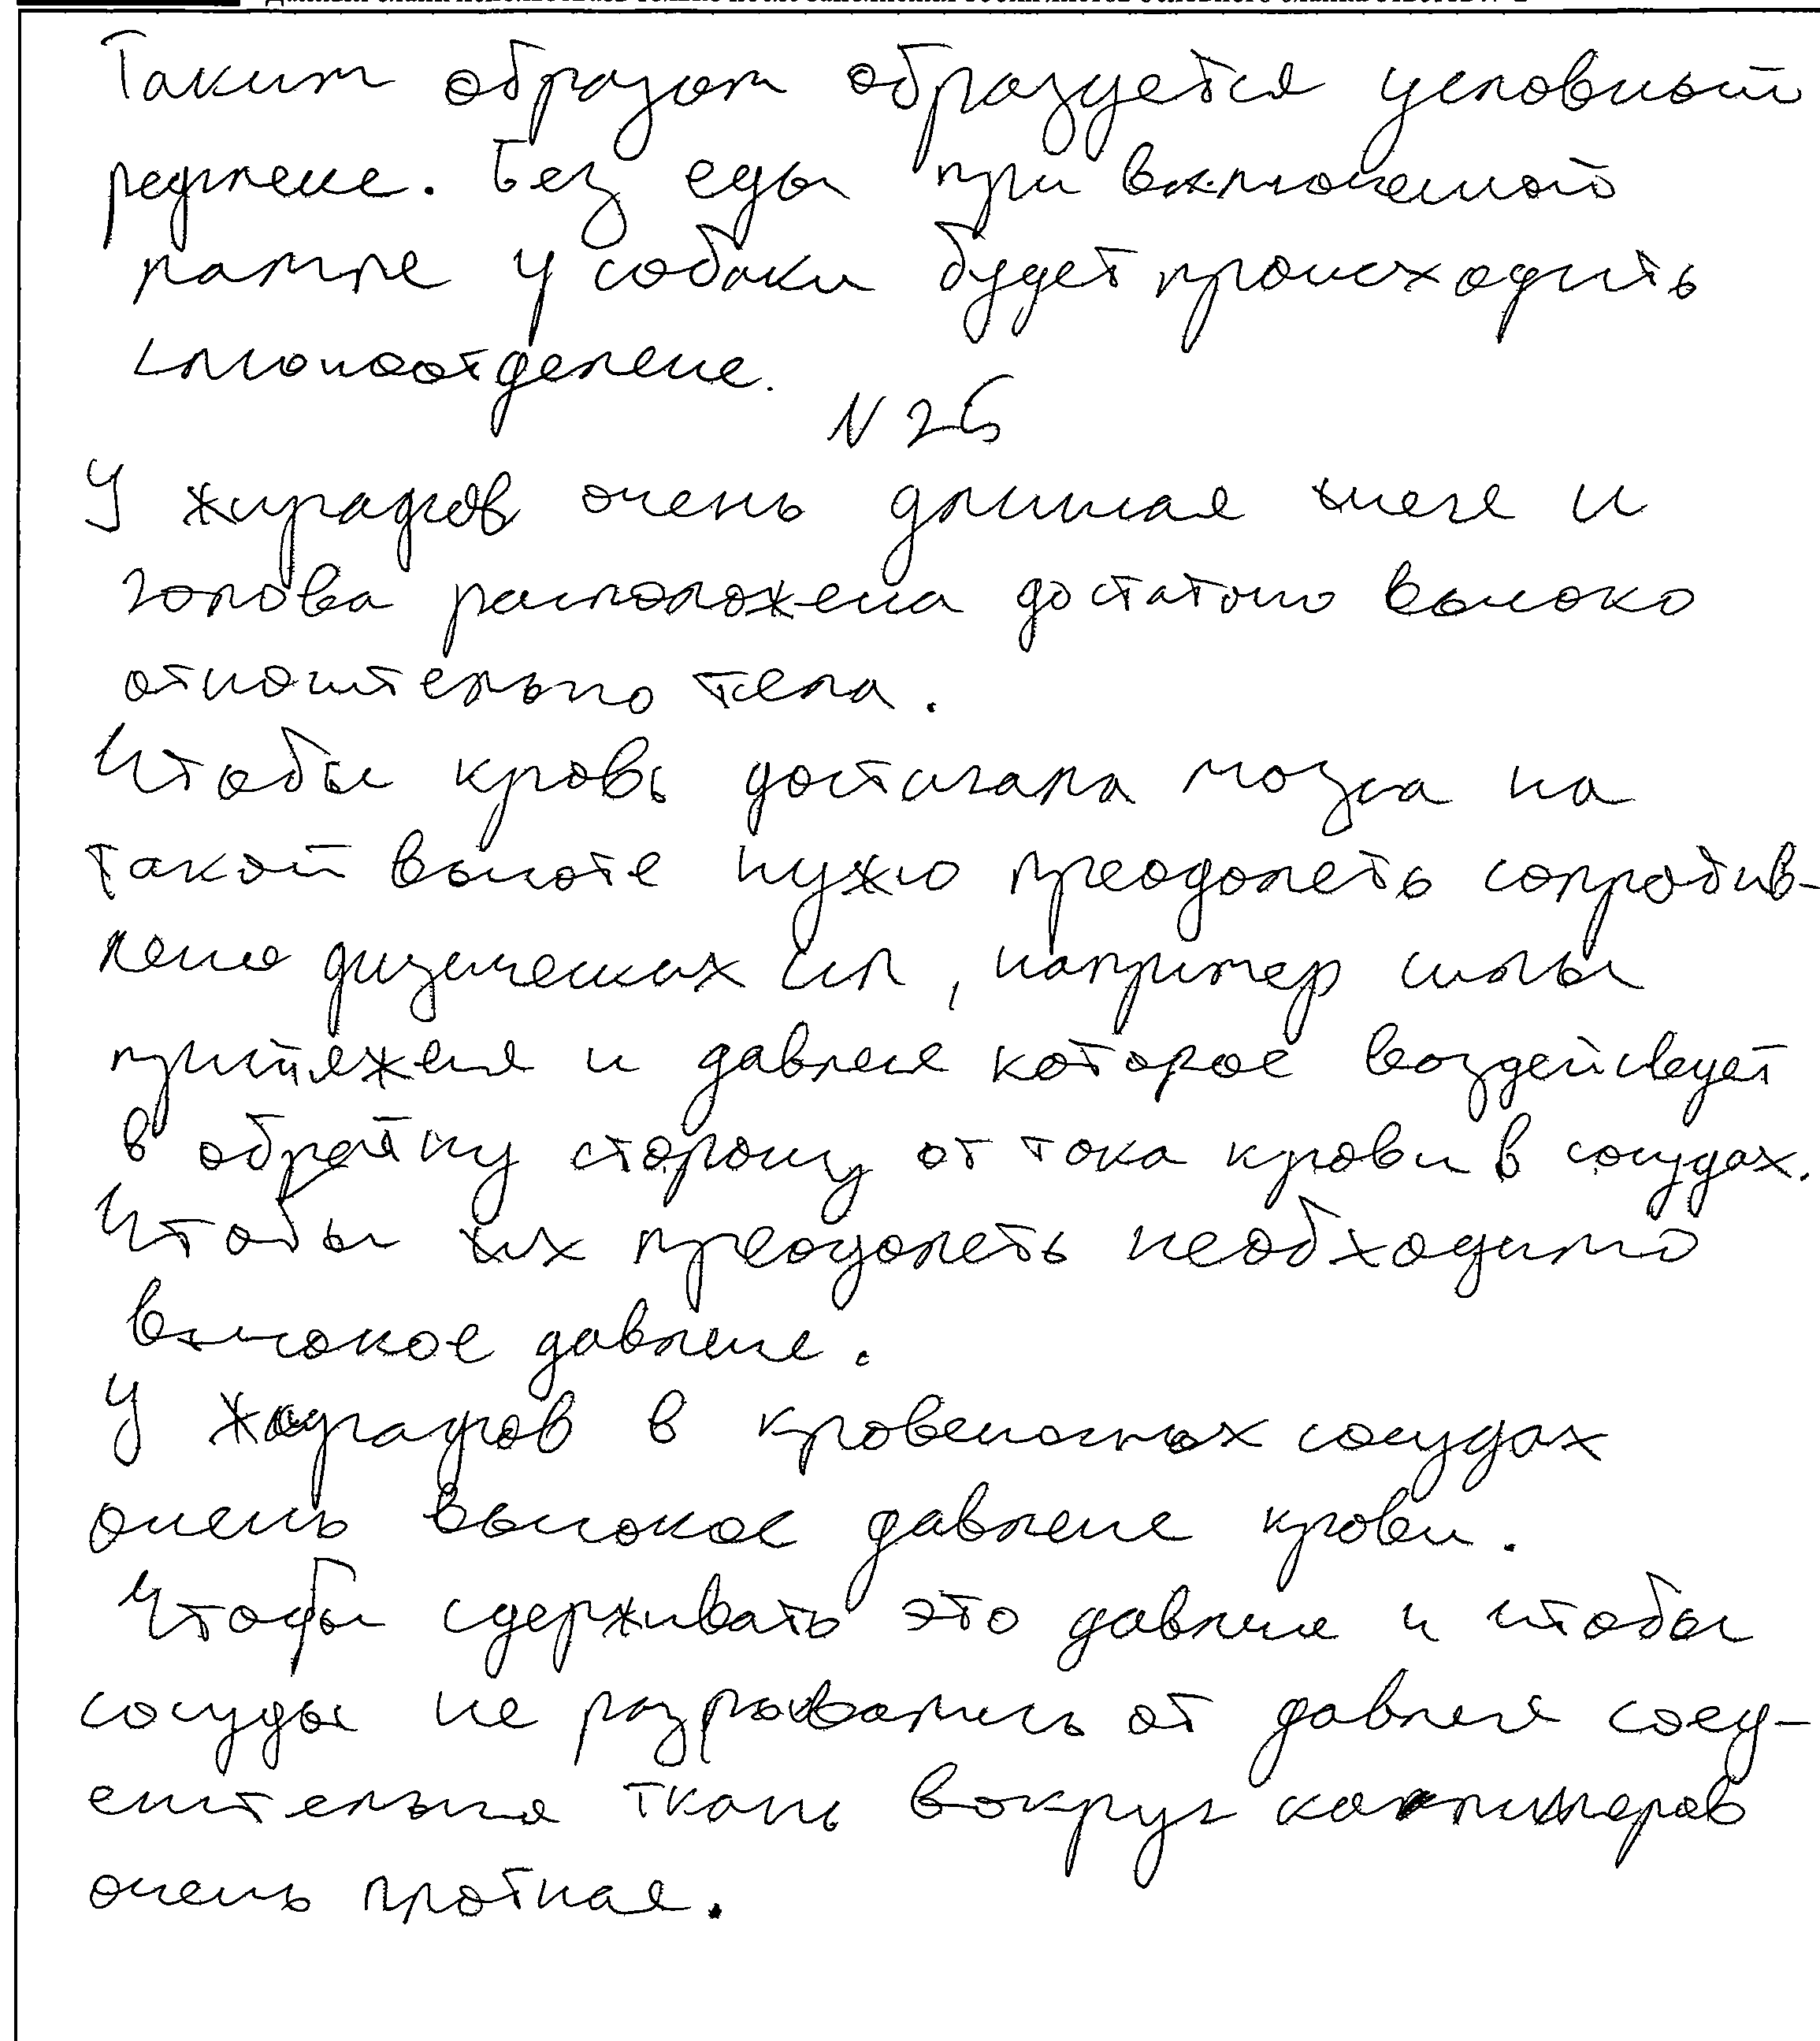 Таким образом образуется условный
рефлекс. Без еды при включенной
лампе у собаки будет происходить
слюноотделение.
N 26
У жирафов очень длинная шея и
голова расположена достаточно высоко
относительно тела.
Чтобы кровь достигала мозга на
такой высоте нужно преодолеть сопротив-
ление физических сил, например силы
притяжения и давление которое воздействует
в обратную сторону от тока крови в сосудах.
Чтобы их преодолеть необходимо
высокое давление.
У жирафов в кровеносных сосудах
очень высокое давление крови.
Чтобы сдерживать это давление и чтобы
сосуды не разрывались от давления соед-
енительная ткань вокруг капилляров
очень плотная.